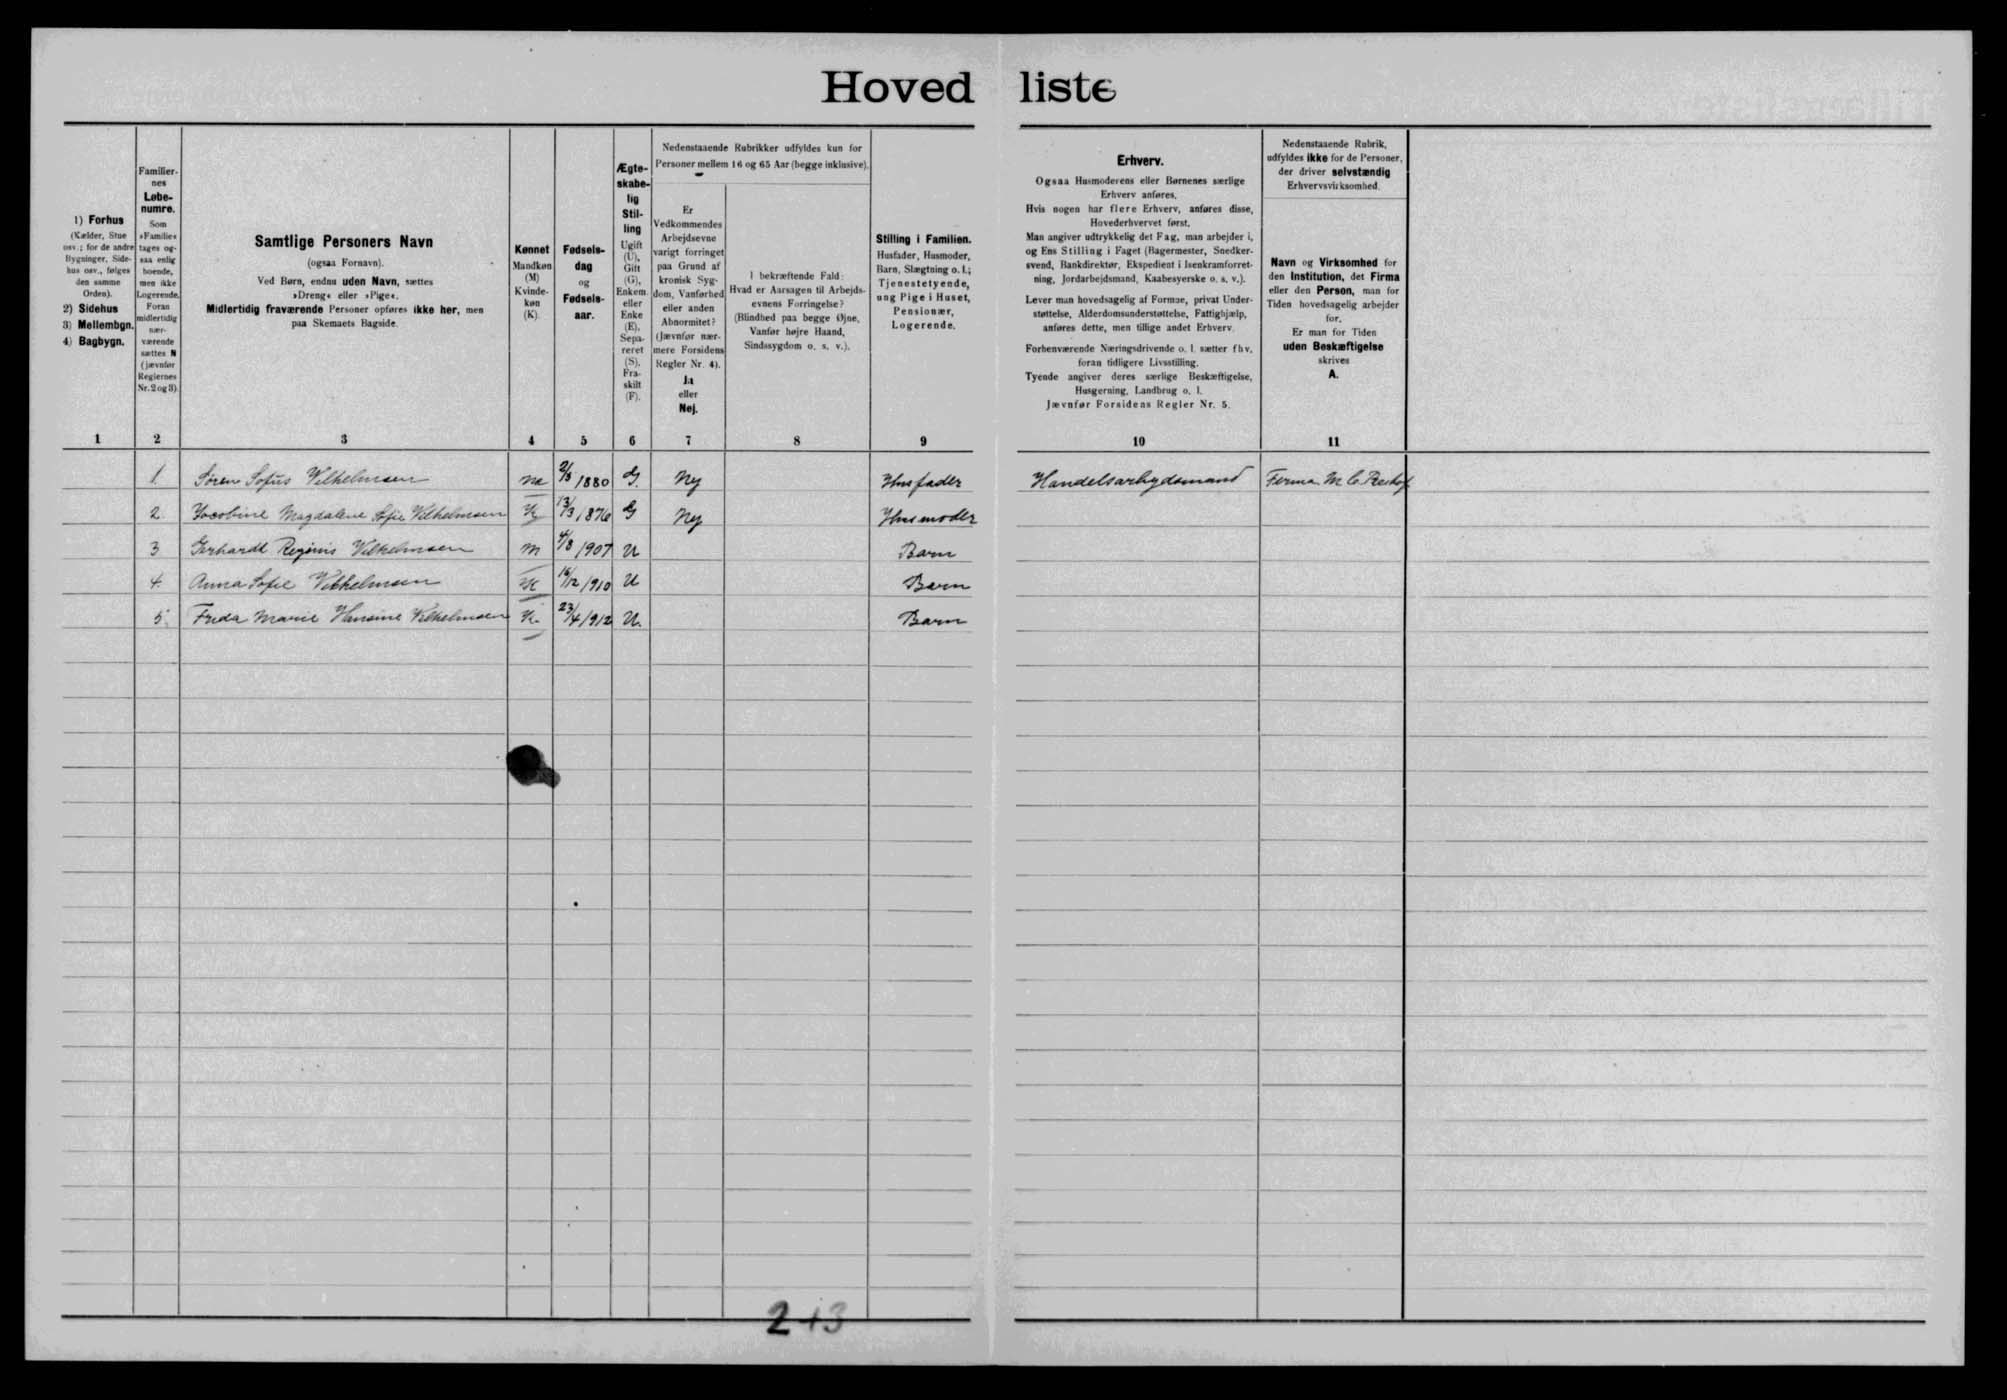 Hovedliste
1) Forhus
(Kælder, Stue
osv.; for de andre
Bygninger, Side-
hus osv., følges
den samme
Orden).
2) Sidehus
3) Mellembgn.
4) Bagbygn.
1
Familier-
nes
Løbe-
numre.
Som
»Familie«
tages og-
saa enlig
boende,
men ikke
Logerende.
Foran
midlertidig
nær-
værende
sættes N
(jævnfør
Reglernes
Nr. 2 og 3).
2
Samtlige Personers Navn
(ogsaa Fornavn).
Ved Børn, endnu uden Navn, sættes
»Dreng« eller »Pige«.
Midlertidig fraværende Personer opføres ikke her, men
paa Skemaets Bagside.
3
Kønnet
Mandkøn
(M)
Kvinde-
køn
(K).
4
Fødsels-
dag
og
Fødsels-
aar.
5
Ægte-
skabe-
lig
Stil-
ling
Ugift
(U),
Gift
(G),
Enkem.
eller
Enke
(E),
Sepa-
reret
(S),
Fra-
skilt
(F).
6
Nedenstaaende Rubrikker udfyldes kun for
Personer mellem 16 og 65 Aar (begge inklusive).
Er
Vedkommendes
Arbejdsevne
varigt forringet
paa Grund af
kronisk Syg-
dom, Vanførhed
eller anden
Abnormitet?
(Jævnfør nær-
mere Forsidens
Regler Nr. 4).
Ja
eller
Nej.
7
I bekræftende Fald:
Hvad er Aarsagen til Arbejds-
evnens Forringelse?
(Blindhed paa begge Øjne,
Vanfør højre Haand,
Sindssygdom o. s. v.).
8
Stilling i Familien.
Husfader, Husmoder,
Barn, Slægtning o. l.;
Tjenestetyende,
ung Pige i Huset,
Pensionær,
Logerende.
9
Erhverv.
Ogsaa Husmoderens eller Børnenes særlige
Erhverv anføres.
Hvis nogen har flere Erhverv, anføres disse,
Hovederhvervet først.
Man angiver udtrykkelig det Fag, man arbejder i,
og Ens Stilling i Faget (Bagermester, Snedker-
svend, Bankdirektør, Ekspedient i Isenkramforret-
ning, Jordarbejdsmand, Kaabesyerske o. s. v.).
Lever man hovedsagelig af Formue, privat Under-
støttelse, Alderdomsunderstøttelse, Fattighjælp,
anføres dette, men tillige andet Erhverv.
Forhenværende Næringsdrivende o. l. sætter fhv.
foran tidligere Livsstilling.
Tyende angiver deres særlige Beskæftigelse,
Husgerning, Landbrug o. l.
Jævnfør Forsidens Regler Nr. 5.
10
Nedenstaaende Rubrik,
udfyldes ikke for de Personer,
der driver selvstændig
Erhvervsvirksomhed.
Navn og Virksomhed for
den Institution, det Firma
eller den Person, man for
Tiden hovedsagelig arbejder
for.
Er man for Tiden
uden Beskæftigelse
skrives
A.
11
1. Søren Sofus Vilhelmsen M 2/3 1880 G. Nej Husfader Handelsarbejdsmand Firma M. C.
2. Jacobine Magdalene Sofie Vilhelmsen K 13/3 1876 G Nej Husmoder
3 Gerhardt Reginis Vilhelmsen M 4/8 1907 U Barn
4. Anna Sofie Vilhelmsen K 16/12 1910 U Barn
5. Freda Marie Hansine Vilhelmsen K. 23/4 1912 U. Barn
2+3